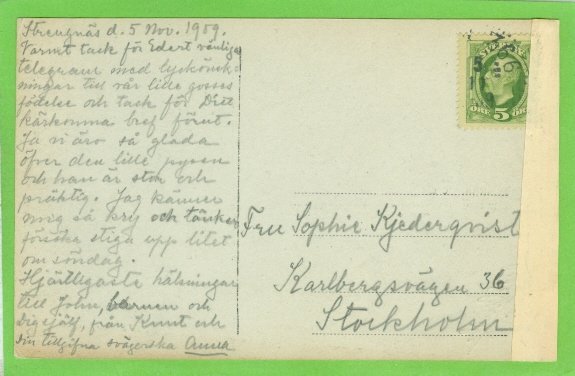 Strengnäs d. 5 Nov. 1909.
Varmt tack för Edert vänliga
telegram med lyckönsk-
ningar till vår lille gosses
födelse och tack för Ditt
kärkomna bref förut.
Ja vi äro så glada
öfver den lille pysen
och han är stor och
präktig. Jag känner
mig så kry och tänker
försöka stiga upp litet
om söndag.
Hjärtligaste hälsningar
till John, barnen och
Dig själf, från Knut och
Din tillgifna svägerska Anna
ÖRE 5 ÖRE
Fru Sophie Kjederqvist
Karlbergsvägen 36
Stockholm